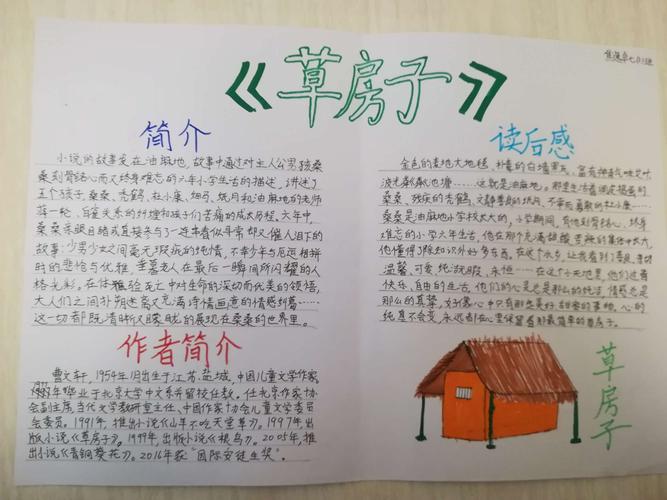 《草房子》
简介
小说的故事发在油麻地,故事中通过对主人公男孩桑
桑刻骨铭心而又终身难忘的六年小学生活的描述,讲述了
五个孩子,桑桑、秃鹤、杜小康、细马、纸月和油麻地的老师
蒋一轮、白雀关系的纠缠和孩子们苦痛的成长历程,六年中,
桑桑亲眼目睹或直接参与了一连串看似寻常却又催人泪下的
故事:少男少女之间毫无瑕疵的纯情,不幸少年与厄运相拼
时的悲怆与优雅,垂暮老人在最后一瞬间所闪耀的人
格光彩。在体验死亡中对生命的深切而优美的领悟,
大人们之间扑朔迷离又充满诗情画意的情感纠葛……
这一切都既清晰又朦胧的展现在桑桑的世界里。
作者简介
曹文轩,1954年1月出生于江苏盐城,中国儿童文学作家,
毕业于北京大学中文系并留校任教,任北京作家协
会副主席,当代文学教研室主任、中国作家协会儿童文学委员
会委员。1991年,推出小说《山羊不吃天堂草》。1997年,出
版小说《草房子》。1999年,出版小说《根鸟》。2005年,推
出小说《青铜葵花》。2016年获“国际安徒生奖”。
读后感
金色的麦地大地毯,朴素的白墙黑瓦,富有神奇气味艾叶
这就是油麻地。那里生活着调皮捣蛋的
桑桑、残疾的秃鹤、文静寡言的纸月、不幸而勇敢的杜小康……
桑桑是油麻地小学校长大的,小学期间,有他刻骨铭心、终身
难忘的小学六年生活,他在那个充满甜酸苦辣的集体中长大,
他懂得了除知识外好多东西,在这个水乡,让我看到了善良、
温馨、可爱、纯洁
快乐、自由的生活,他们的心是总是那么的纯洁,情感总是
那么的真挚,
纯真不会变,永远都在心里保留着那最简单的草房子。
草房子